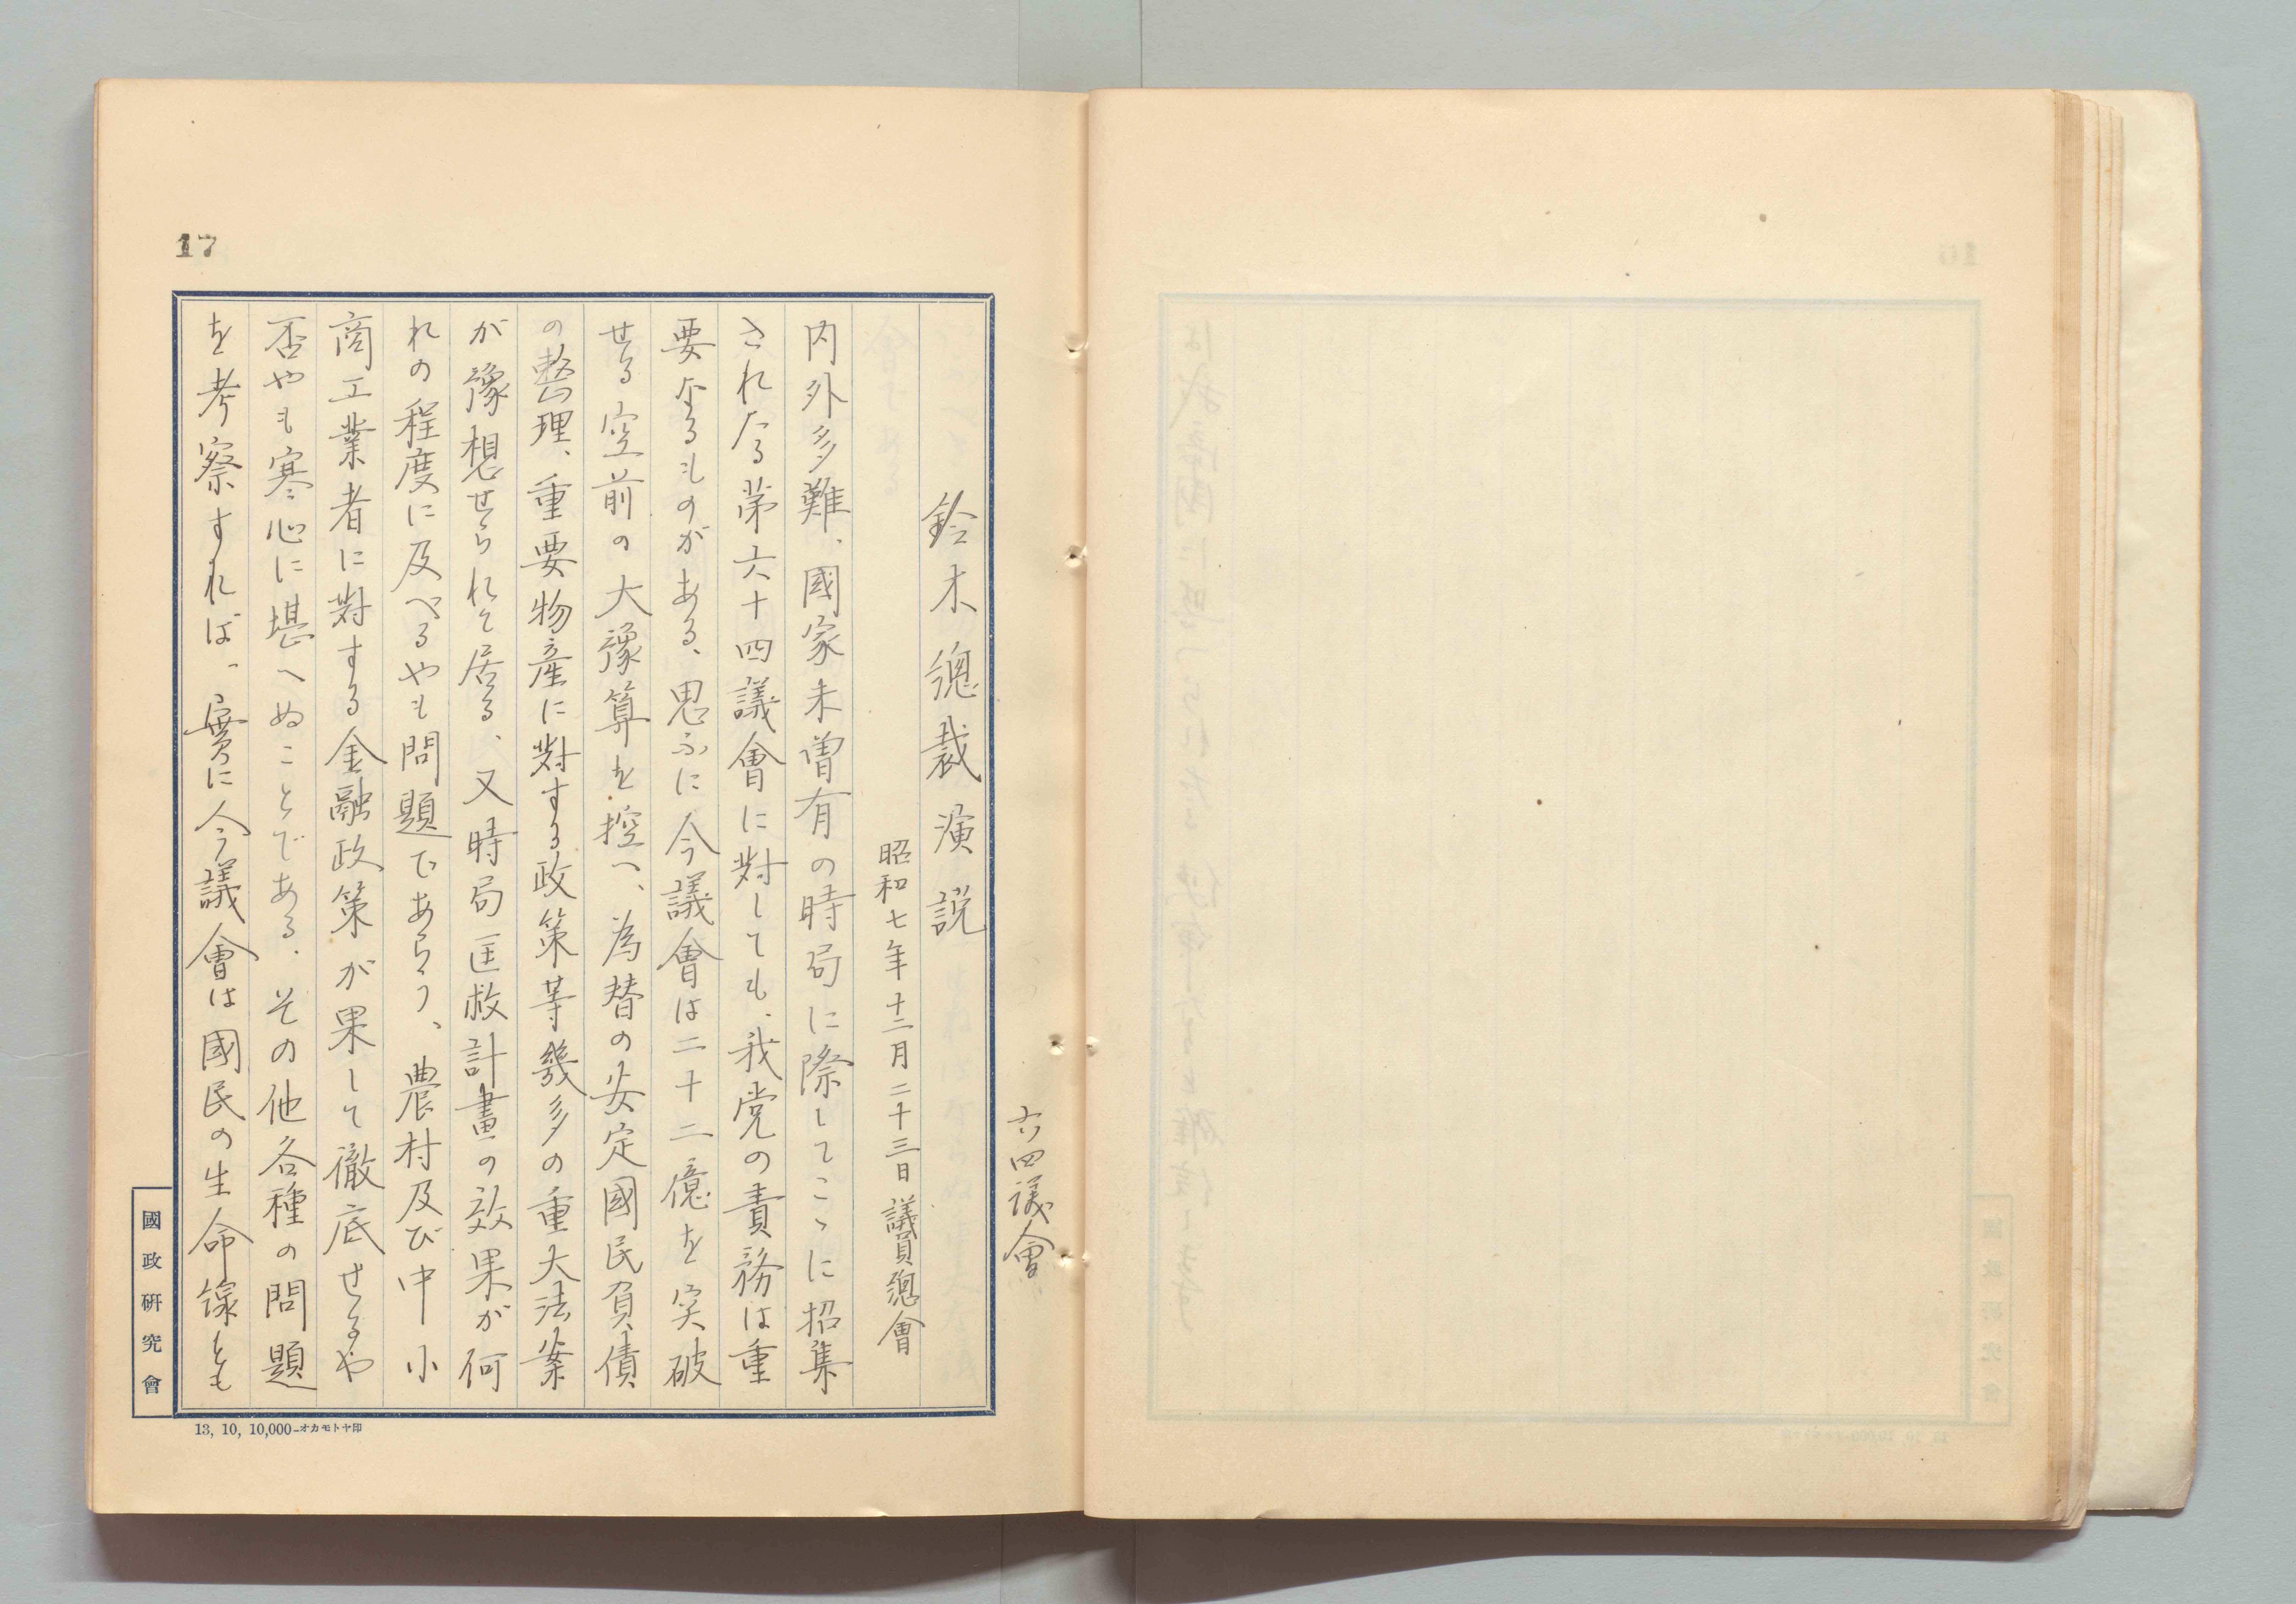 六四議會
鈴木總裁演説
昭和七年十二月二十三日議員總會
内外多難、國家未曽有の時局に際してこゝに招集
されたる第六十四議會に對しても、我党の責務は重
要なるものがある、思ふに今議會は二十二億を突破
せる空前の大豫算を控へ、為替の安定國民負債
の整理、重要物産に對する政策等幾多の重大法案
が豫想せられて居る、又時局匡救計畫の效果が何
れの程度に及べるやも問題であらう、農村及び中小
商工業者に對する金融政策が果して徹底せるや
否やも寒心に堪へぬことである、その他各種の問題
を考察すれば、實に今議會は國民の生命線とも
17
國政研究會
13, 10, 10,000-オカモトヤ印